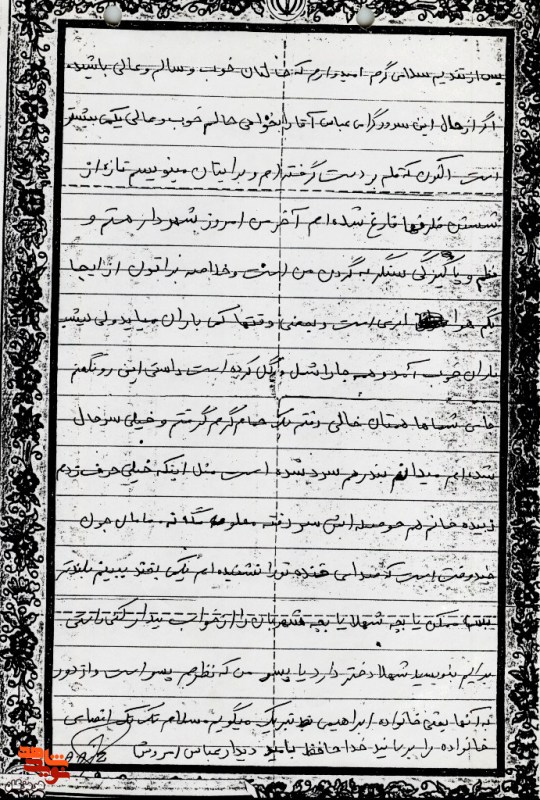 پس از تقدیم سلامی گرم امیدوارم که حالتان خوب و سالم و عالی باشید
اگر از حال این سرور گرامی عباس آقا را بخواهی حالم خوب و عالی یکی بیشتر
است اکنون که قلم بر دست گرفته‌ام و برایتان مینویسم تازه از
شستن ظرفها فارغ شده‌ام آخر من امروز شهردار هستم و
نظم و پاکیزگی سنگر به گردن من است و خلاصه براتون از اینجا
بگم هوا ابری است و بعضی وقتها کمی باران میاید ولی دیشب
باران خوب آمد و همه جا را شل و گل کرده است راستی این رو نگفتم
جای شماها همتان خالی رفتم یک حمام گرم گرفتم و خیلی سرحال
شده‌ام میدانم بندر هم سرد شده است مثل اینکه خیلی حرف زدم
زبیده خانم هم حوصله‌اش سر رفته معلومه مگه نه مامان جون
چند وقت است که صدای خنده تو را نشنیده‌ام یکی بخند ببینم بلندتر
ممکن یا بچه شهلا یا بچه را از خواب بیدار کنی راستی
برایم بنویسید شهلا دختر دارد یا پسر من که نظرم پسر است و از دور
به آنها یعنی خانواده ابراهیمی تبریک میگویم سلام تک تک اعضای
خانواده را برسانید خدا حافظ دیدار عباس